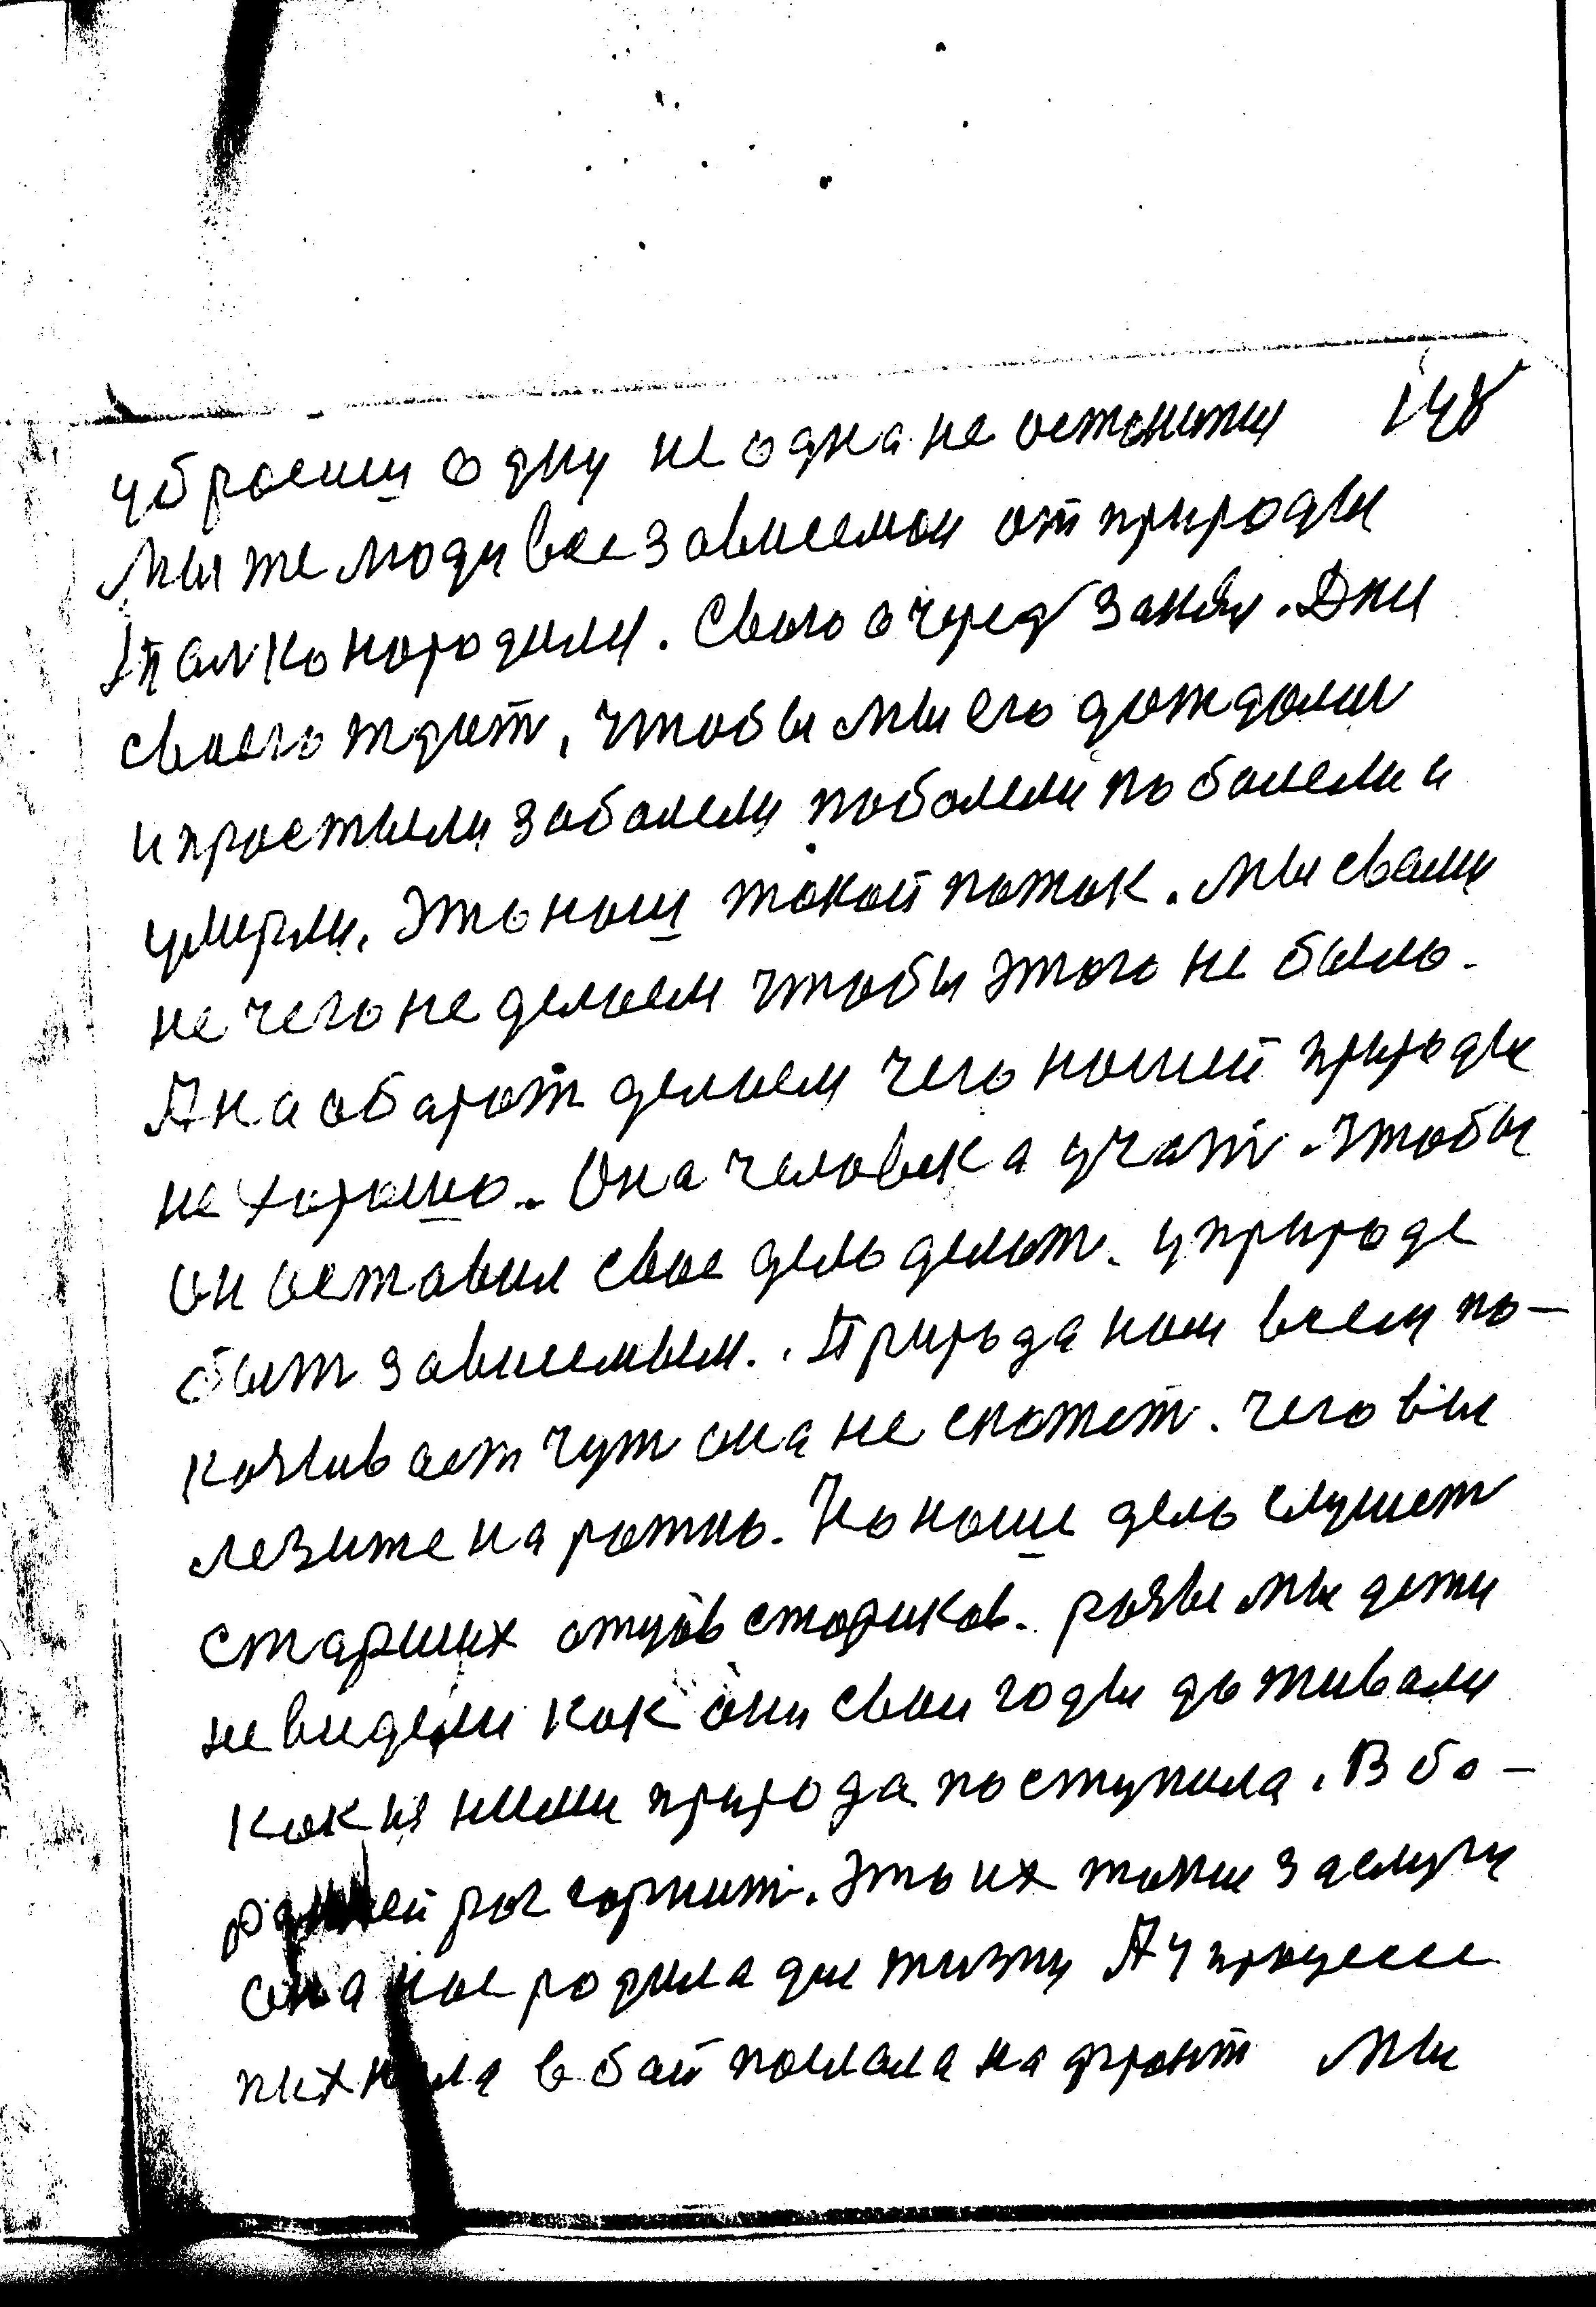 убросиш одну не одна не останится 148
Мы же люди все зависемои от природы
только народили. Свого очередь заняли. Дни
своего ждёт, чтобы мы его дождали
и простыли заболели поболели поболели и
умерли. Это наш такой поток. Мы свами
не чего не делаем чтобы этого не было.
А наобарот делаем чего нашей природы
не хорошо. Она человека учат. чтобы
он оставил свое дело делат. у природе
быт зависемым. Природа нам всем по-
казывает чут она не скажет. чего вы
лезите на рожно. Но наше дело слушат
старших отцов стариков. разве мы дети
не видели как они свои годы доживали
как из ними природа поступила. В ба-
раней рог горнит. Это их такие заслуги
она нас родила для жизни А у процессе
пихнула в бой послала на фронт Мы